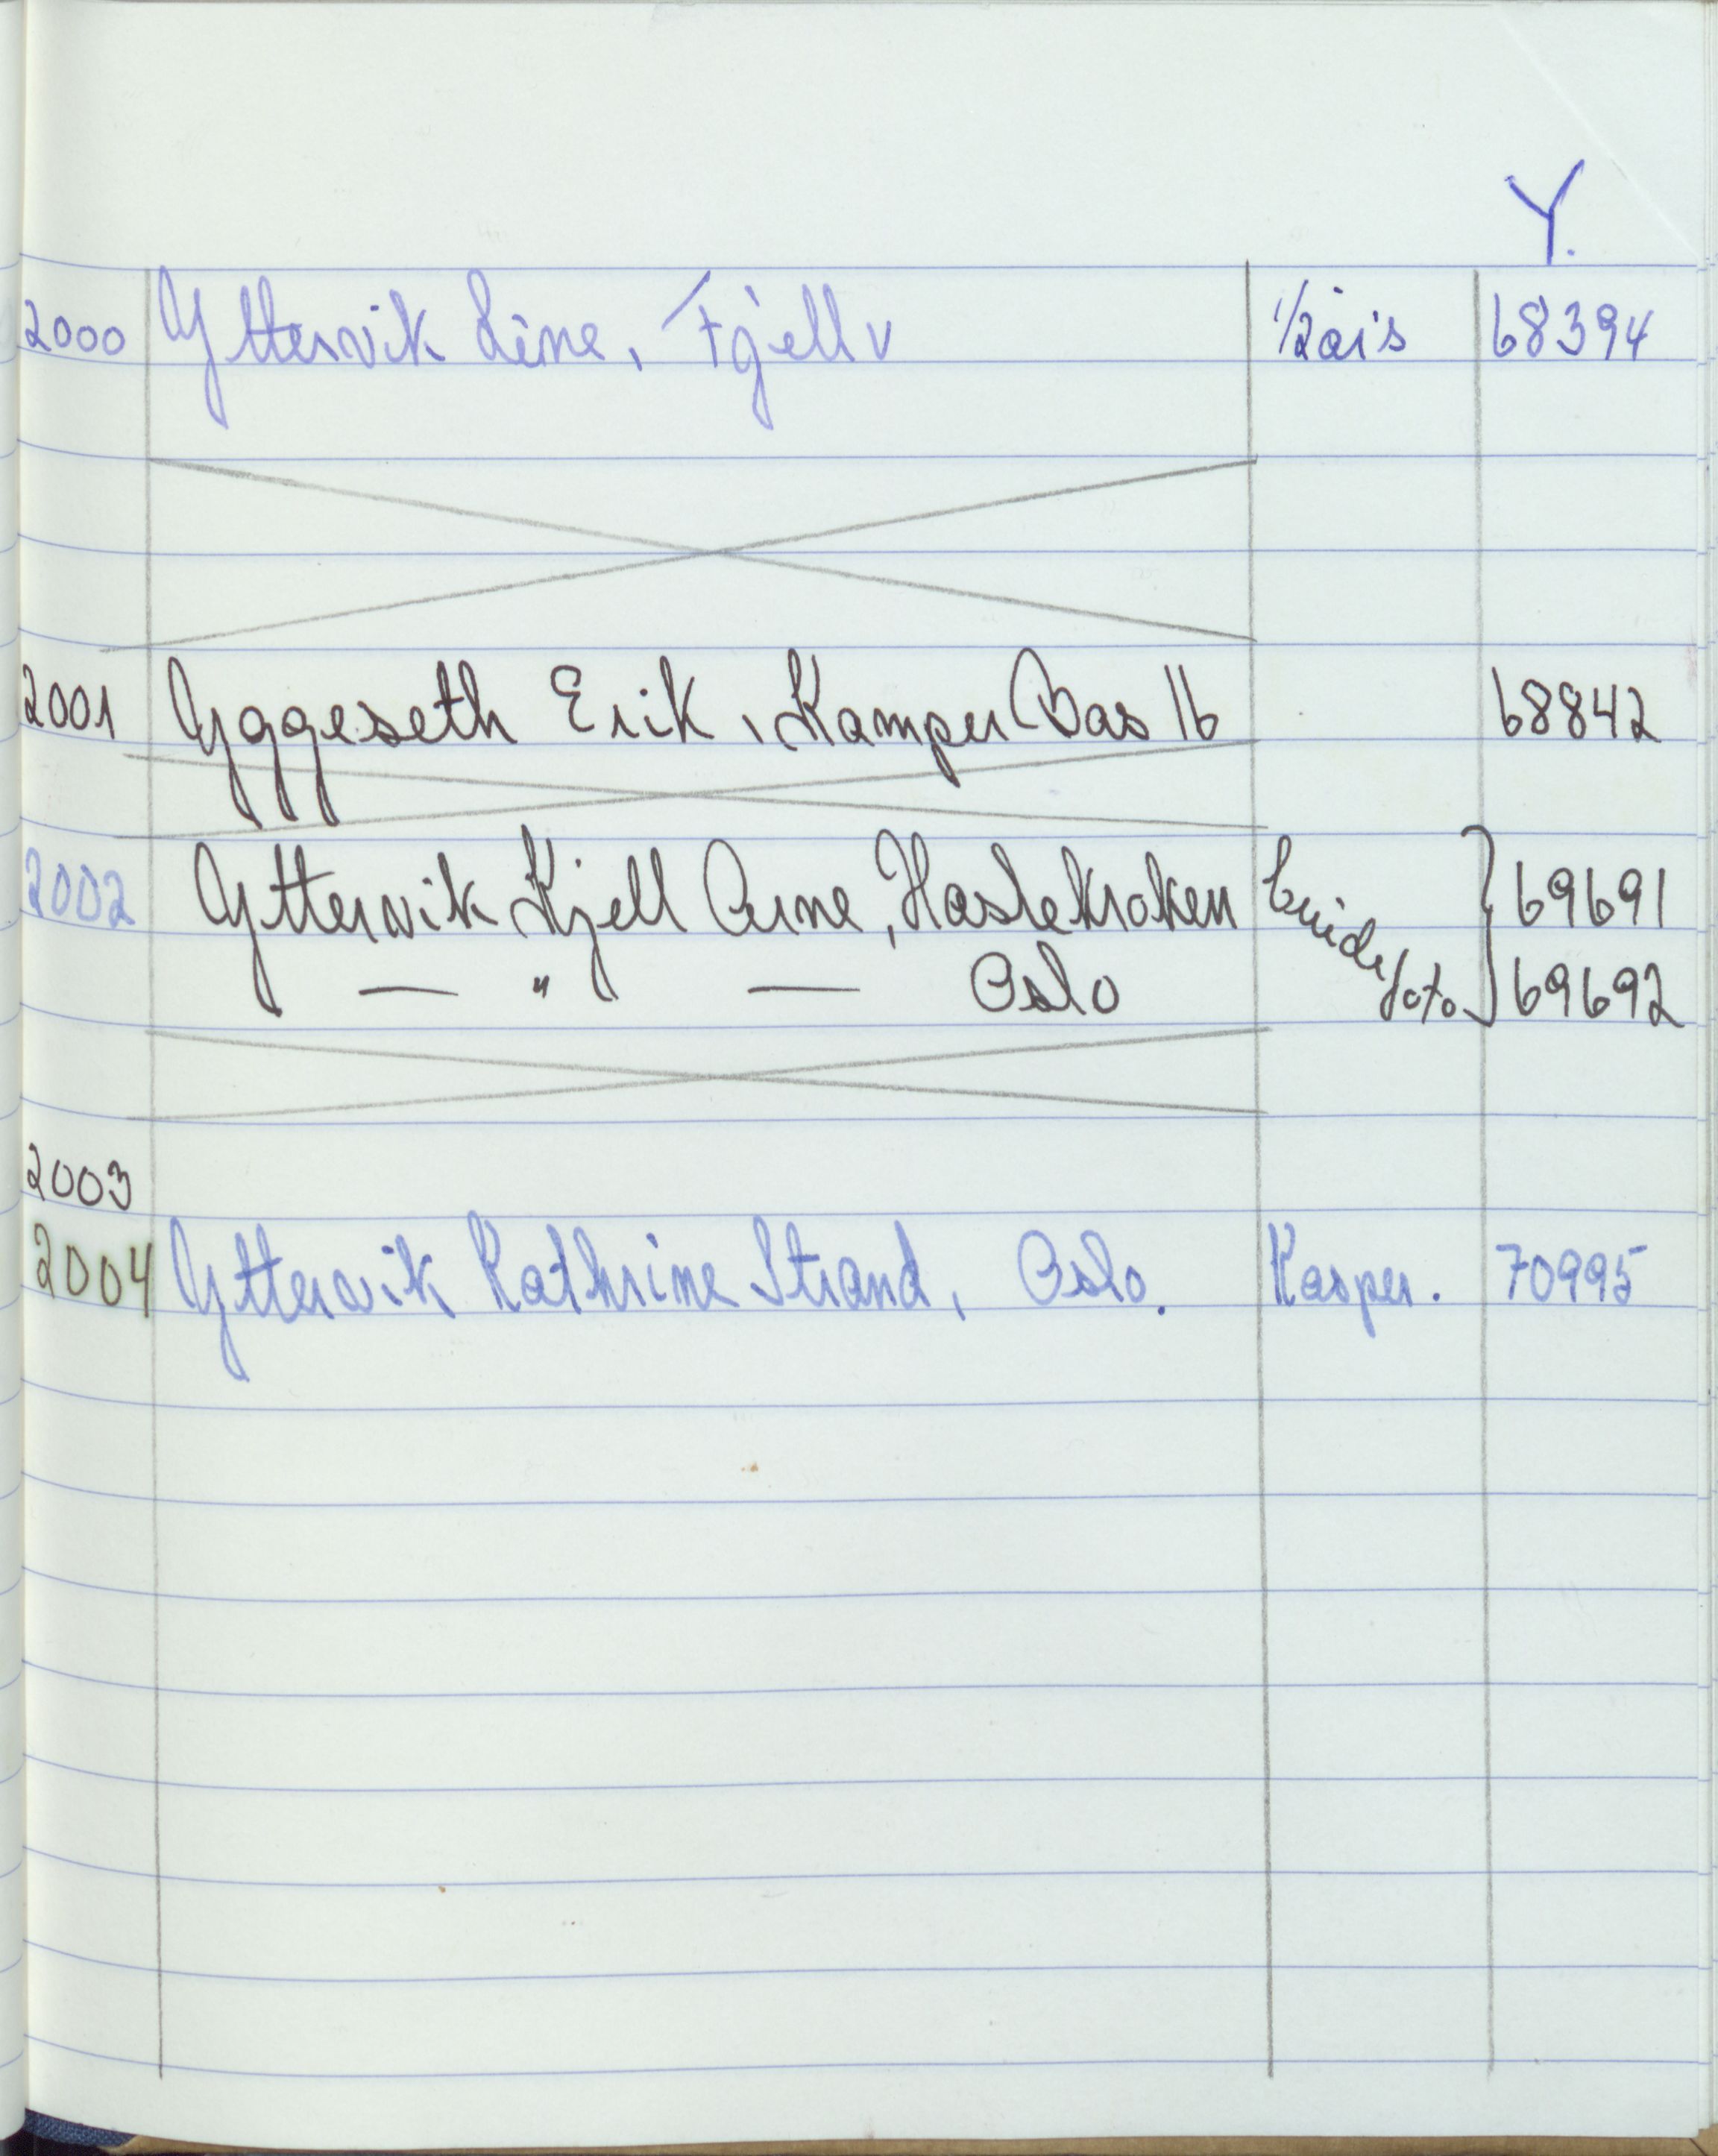 Y.
2000 Yttervik Line, Fjellv 1/2 års 68394
2001 Yggeseth Erik, Kamper Bas 16 68842
2002 Yttervik Kjell Arne, Haslekroken brude 69691
— " — Oslo foto 69692
2003
2004 Yttervik Kathrine Strand, Oslo. Kasper. 70995